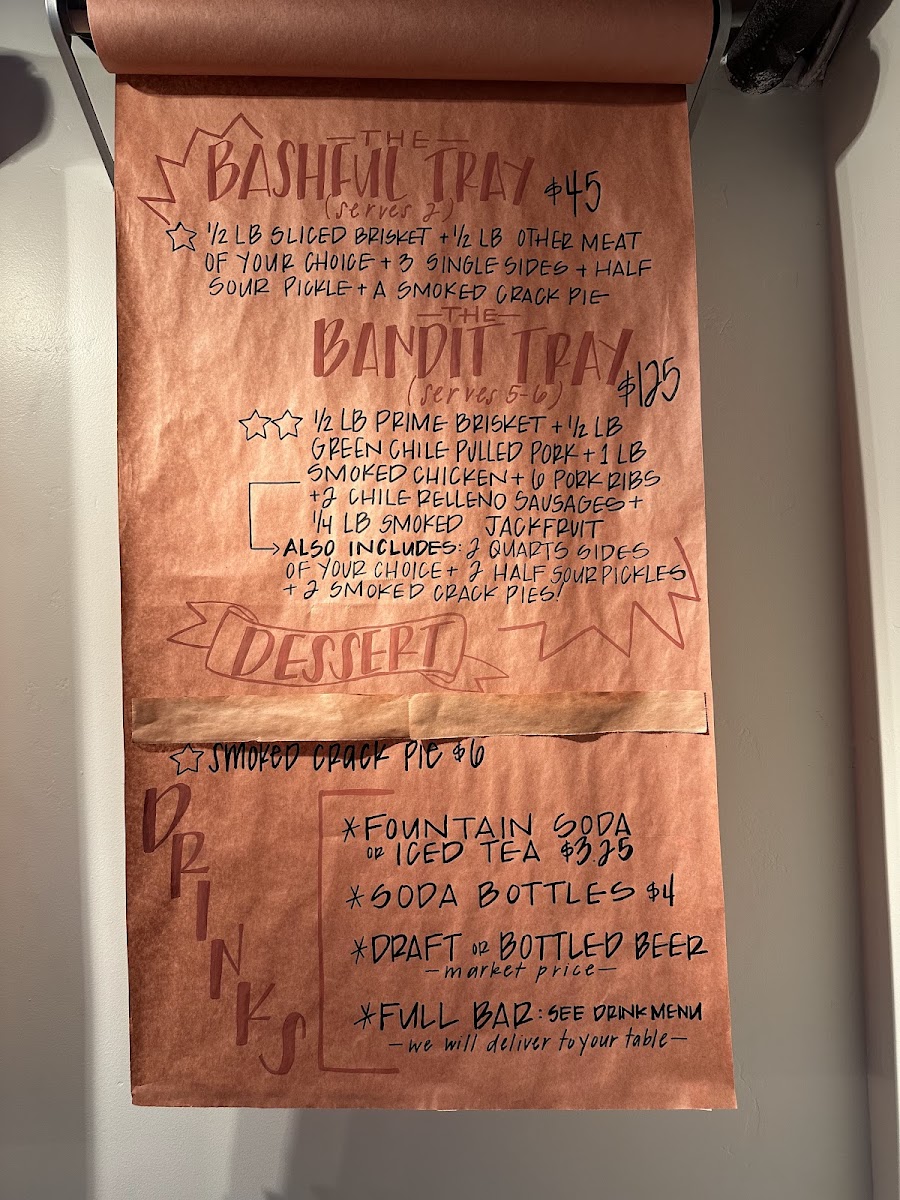 THE
BASHFUL TRAY $45
(serves 2)
1/2 LB SLICED BRISKET + 1/2 LB OTHER MEAT
OF YOUR CHOICE + 3 SINGLE SIDES + HALF
SOUR PICKLE + A SMOKED CRACK PIE
THE
BANDIT TRAY $125
(serves 5-6)
1/2 LB PRIME BRISKET + 1/2 LB
GREEN CHILE PULLED PORK + 1 LB
SMOKED CHICKEN + 6 PORK RIBS
+ 2 CHILE RELLENO SAUSAGES +
1/4 LB SMOKED JACKFRUIT
ALSO INCLUDES: 2 QUARTS SIDES
OF YOUR CHOICE + 2 HALF SOUR PICKLES
+ 2 SMOKED CRACK PIES!
DESSERT
smoked crack pie $6
DRINKS
*FOUNTAIN SODA
OR ICED TEA $3.25
*SODA BOTTLES $4
*DRAFT OR BOTTLED BEER
—market price—
*FULL BAR: SEE DRINK MENU
—we will deliver to your table—